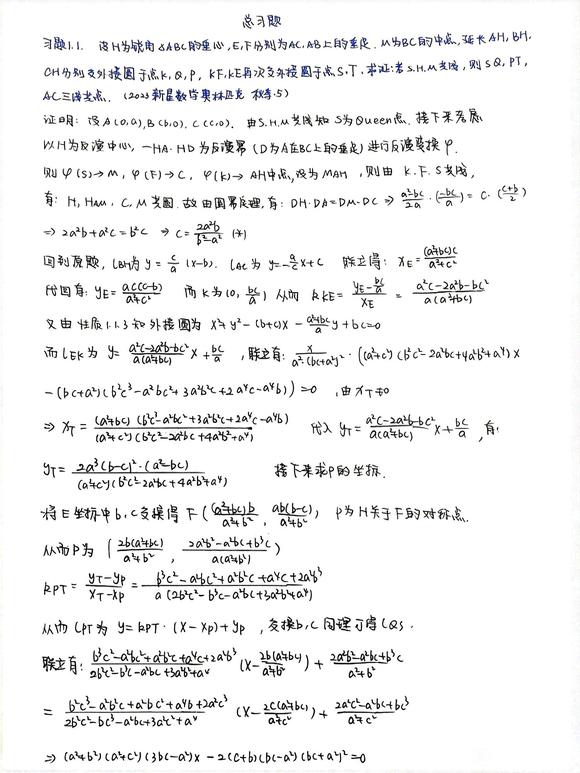 总习题
习题1.1. 设H为锐角△ABC的垂心,E,F分别为AC,AB上的垂足.M为BC的中点,延长AH,BH,
CH分别交外接圆于点K,Q,P, KF,KE再次交外接圆于点S,T.求证:若S.H.M共线,则SQ,PT,
AC三线共点. (2023新星数学奥林匹克 秋季·5)
证明: 设A(0,a),B(b,0), C(c,0). 由S.H.M共线知 S为Queen点. 接下来考虑
以H为反演中心,-HA·HD为反演幂(D为A在BC上的垂足)进行反演变换φ.
则φ(S)→M, φ(F)→C, φ(K)→AH中点,设为MAH, 则由 K.F.S共线,
有: H, HAM, C, M共圆.故由圆幂定理,有: DH·DA=DM·DC ⇒ \frac{a²-bc}{2a}·(\frac{-bc}{a}) = C·(\frac{c+b}{2})
⇒ 2a²b+a²c=b²c ⇒ c=\frac{2a²b}{b²-a²} (*)
回到原题, LBH为 y=\frac{c}{a}(x-b). LAC为 y=-\frac{a}{c}x+c 联立得: xE=\frac{(a²+bc)c}{a²+c²}
代回有: yE=\frac{ac(c-b)}{a²+c²} 而K为(0,\frac{bc}{a}) 从而 kKE=\frac{yE-\frac{bc}{a}}{xE}=\frac{a²c-2a²b-bc²}{a(a²+bc)}
又由性质1.1.3知外接圆为 x²+y²-(b+c)x-\frac{a²+bc}{a}y+bc=0
而LEK为 y=\frac{a²c-2a²b-bc²}{a(a²+bc)}x+\frac{bc}{a} ,联立有: \frac{x}{a²·(bc+a²)²}·((a²+c²)(b²c²-2a²bc+4a²b²+a⁴)x
-(bc+a²)(b²c³-a²bc²+3a²b²c+2a⁴c-a⁴b))=0 ,由xT≠0
⇒ xT=\frac{(a²+bc)(b²c³-a²bc²+3a²b²c+2a⁴c-a⁴b)}{(a²+c²)(b²c²-2a²bc+4a²b²+a⁴)} 代入 yT=\frac{a²c-2a²b-bc²}{a(a²+bc)}x+\frac{bc}{a},有:
yT=\frac{2a³(b-c)²·(a²-bc)}{(a²+c²)(b²c²-2a²bc+4a²b²+a⁴)} 接下来求P的坐标.
将E坐标中b,c交换得 F(\frac{(a²+bc)b}{a²+b²},\frac{ab(b-c)}{a²+b²}), P为H关于F的对称点.
从而P为(\frac{2b(a²+bc)}{a²+b²},\frac{2a²b²-a²bc+b³c}{a(a²+b²)})
kPT=\frac{yT-yP}{xT-xP}=\frac{b³c²-a²bc²+a²b²c+a⁴c+2a²b³}{a(2b²c²-b³c-a²bc+3a²b²+a⁴)}
从而LPT为 y=kPT·(x-xp)+yp ,交换b,c同理可得LQS.
联立有: \frac{b³c²-a²bc²+a²b²c+a⁴c+2a²b³}{2b²c²-b³c-a²bc+3a²b²+a⁴}(x-\frac{2b(a²+bc)}{a²+b²})+\frac{2a²b²-a²bc+b³c}{a²+b²}
=\frac{b²c³-a²b²c+a²bc²+a⁴b+2a²c³}{2b²c²-bc³-a²bc+3a²c²+a⁴}(x-\frac{2c(a²+bc)}{a²+c²})+\frac{2a²c²-a²bc+bc³}{a²+c²}
⇒ (a²+b²)(a²+c²)(3bc-a²)x-2(c+b)(bc-a²)(bc+a²)²=0